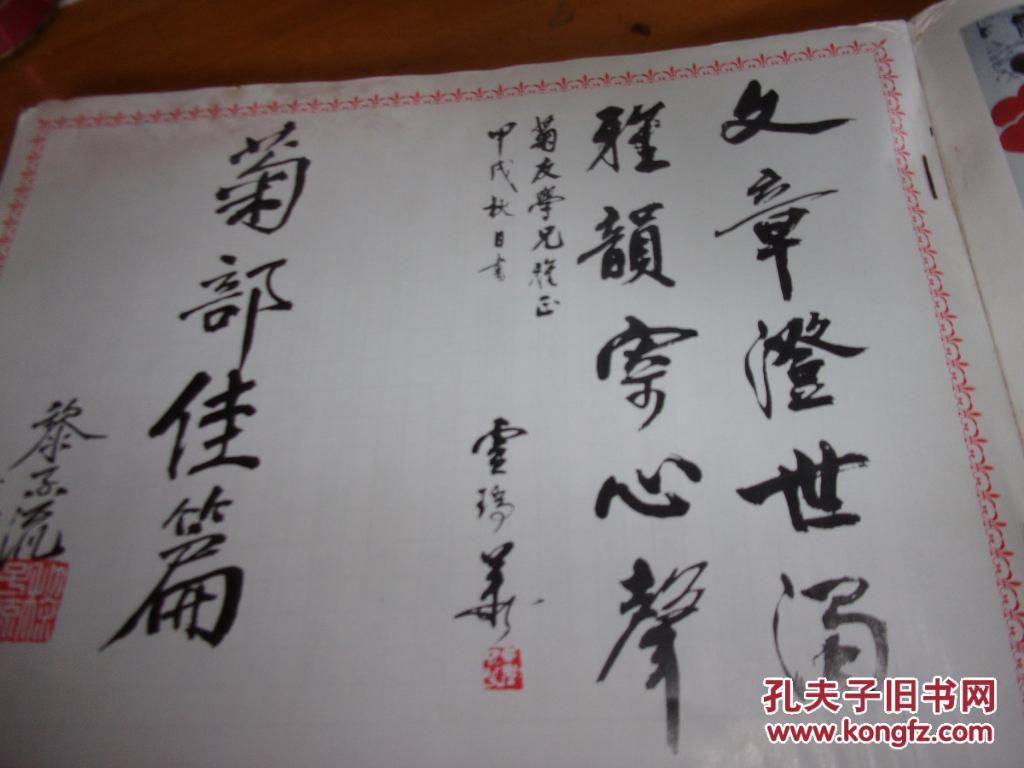 文章澄世濁
雅韻寄心聲
菊友學兄雅正
甲戌秋日書
雲瑞
菊部佳篇
黎子流
孔夫子旧书网
www.kongfz.com